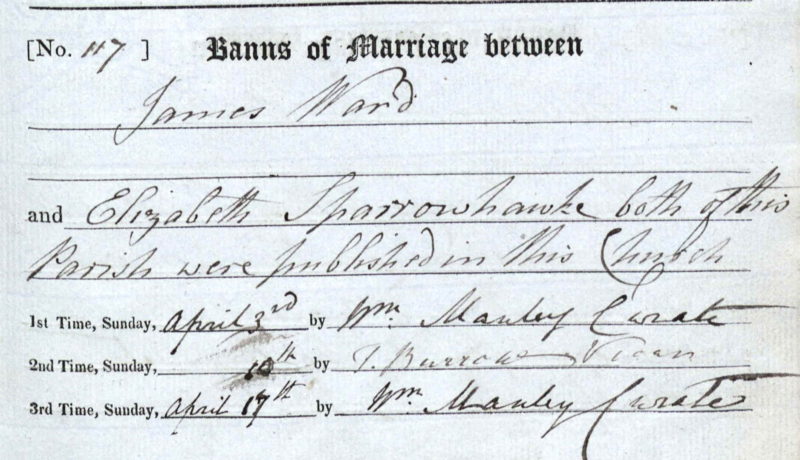 [No. 117 ] Banns of Marriage between
James Ward
and Elizabeth Sparrowhawke both of this
Parish were published in this Church
1st Time, Sunday, April 3rd by Wm. Manley Curate
2nd Time, Sunday, 10th by T. Burrow Vicar
3rd Time, Sunday, April 17th by Wm. Manley Curate